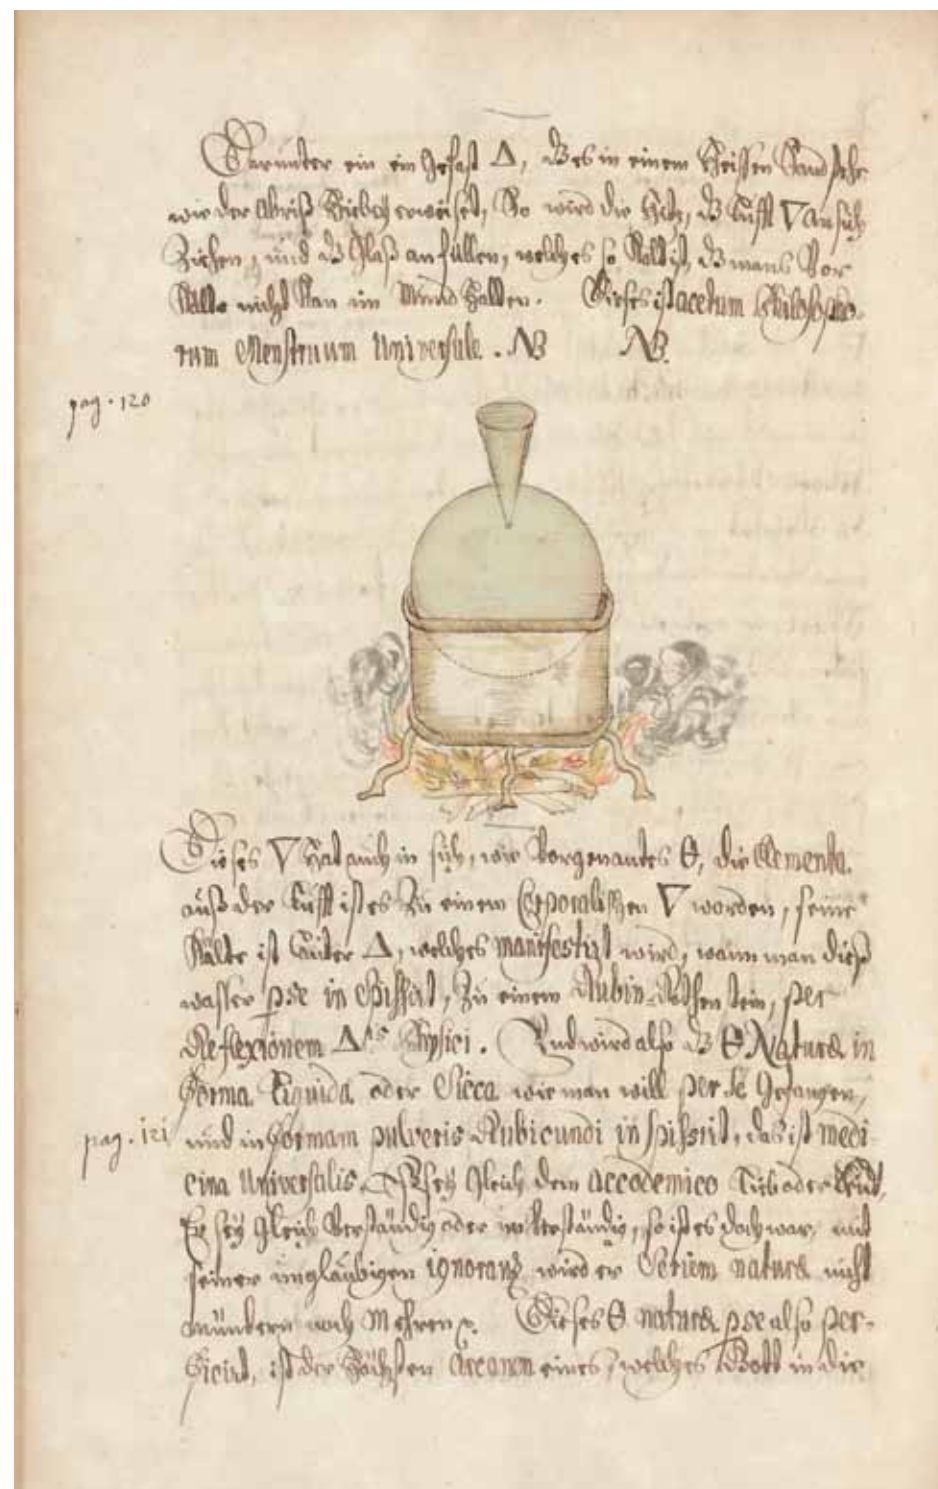 Darunter ein ein gefast △, Des in einem Heissen Sand stehe
wie der Abriß hiebey erweiset, So wird die Hitz, dz Lufft ▽ an sich
Ziehen, und dz Glaß anfüllen, welches so Kalt ist, dz mans Vor
Kälte nicht Kan im Mund halten. Dieses ist acetum Philosopho-
rum Menstruum Universale. NB NB.
pag. 120
Dieses ▽ Hat auch in sich, wie Vorgenantes, die Elementa.
auß der Lufft ist es Zu einem Corporalischen ▽ worden, seine
Kälte ist Lauter △, welches manifestirt wird, wann man dieß
wasser per se in spissirt, Zu einem Rubin Rothen stein, per
Reflexionem △ Physici. Und wird also dz Naturæ in
Forma Liquida oder Sicca wie man will per se Gefangen,
pag. 121
und in Formam pulveris Rubicundi in spissirt, das ist medi-
cina Universalis, Es sey Gleich dem accademico Lieb oder Leid,
Er sey Gleich Verständig oder un Verständig, so ist es doch war, mit
seiner ungläubigen ignoranz wird er Seriem naturæ nicht
mündern noch Mehren. Dieses naturæ per se also per-
ficirt, ist der Höchsten Arcanen eines, welches Gott in die